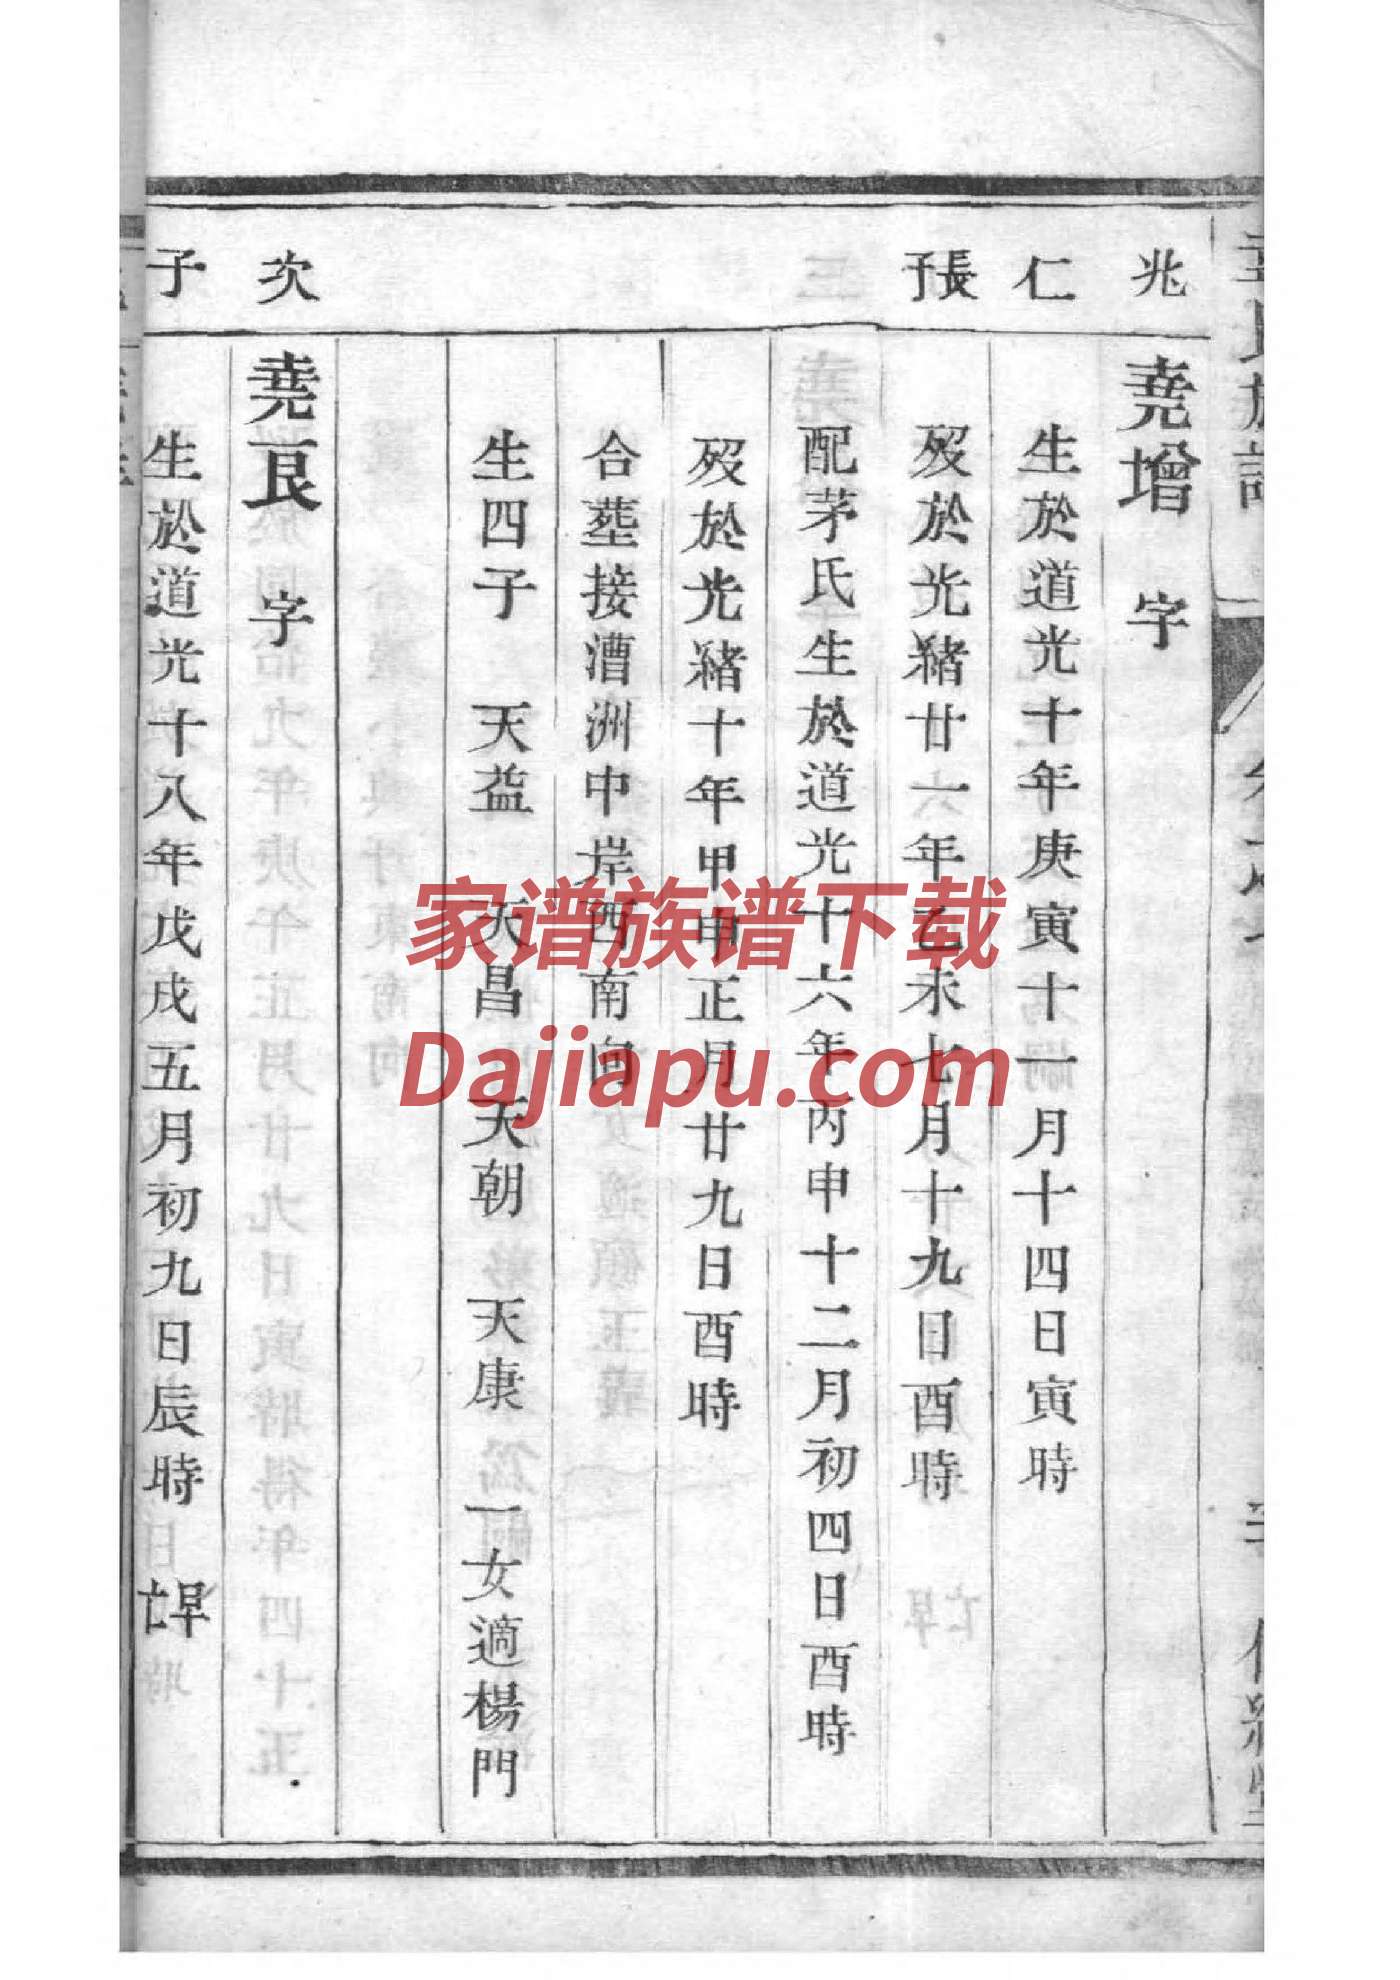 兆
堯增 字
仁
生於道光十年庚寅十一月十四日寅時
張子
歿於光緒廿一六年乙未七月十九日酉時
配茅氏生於道光十六年丙申十二月初四日酉時
歿於光緒十年甲申正月廿九日酉時
合塟接漕洲中岸西南向
生四子 天益 天昌 天朝 天康 一女適楊門
次
堯良 字
子
生於道光十八年戊戌五月初九日辰時 早亡
家谱族谱下载
Dajiapu.com